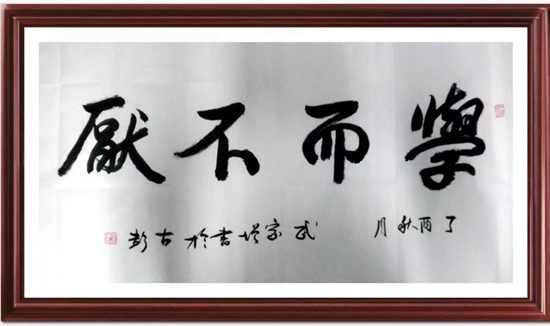 學而不厭
丁酉秋月 武家 書於古彭